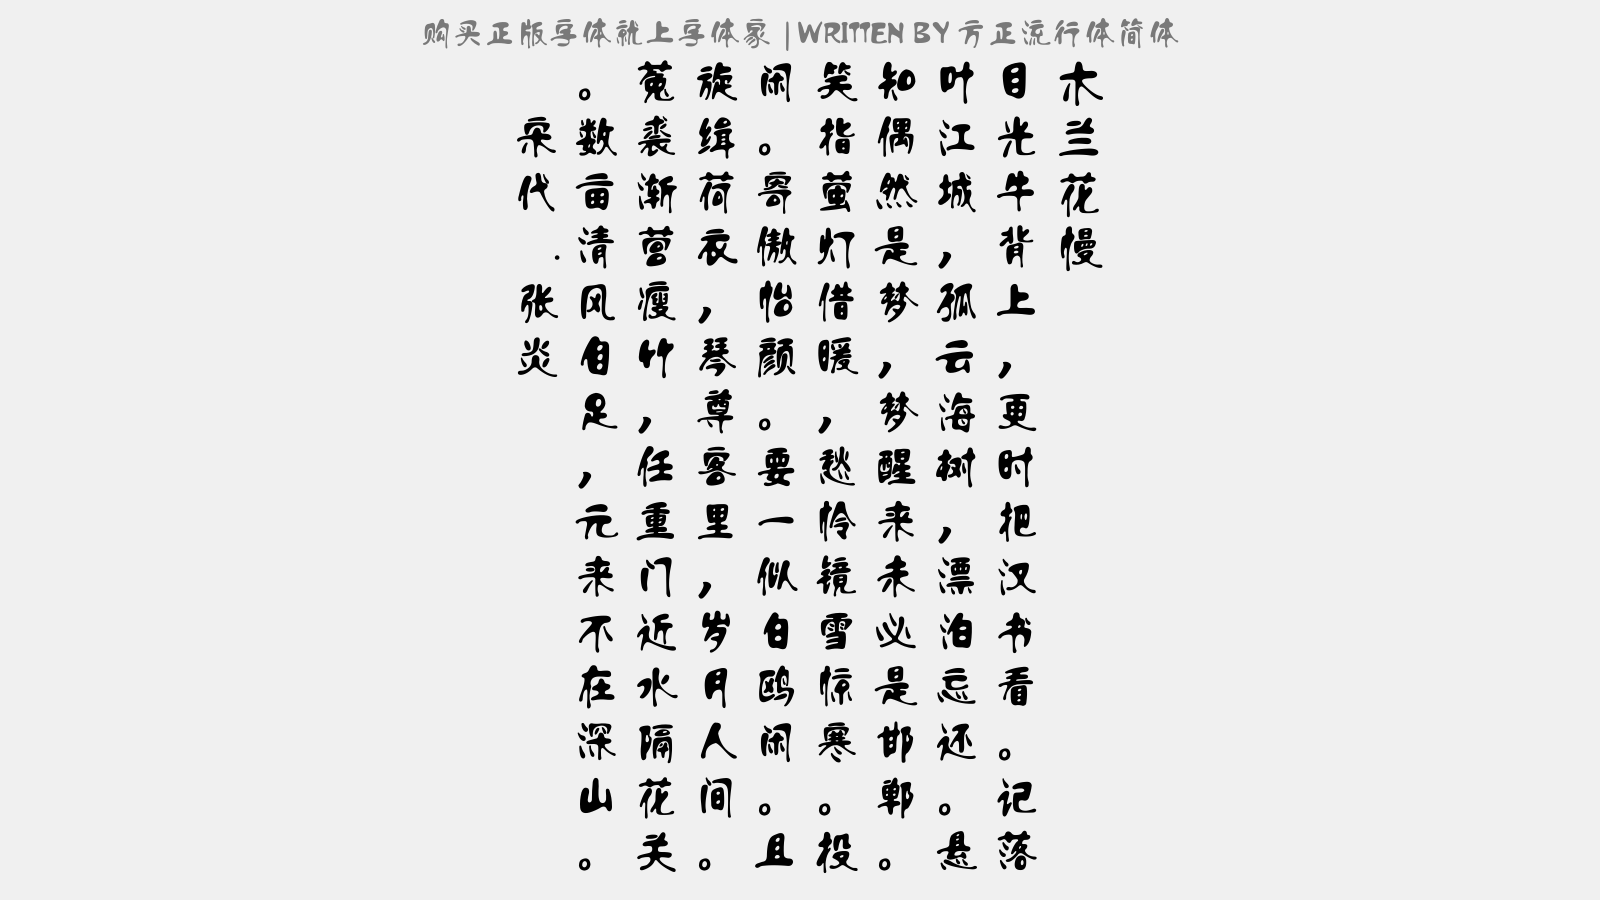 购买正版字体就上字体家 | WRITTEN BY 方正流行体简体
木兰花慢
目光牛背上，更时把汉书看。记落
叶江城，孤云海树，漂泊忘还。悬
知偶然是梦，梦醒来未必是邯郸。
笑指萤灯借暖，愁怜镜雪惊寒。投
闲。寄傲怡颜。要一似白鸥闲。且
旋缉荷衣，琴尊客里，岁月人间。
菟裘渐营瘦竹，任重门近水隔花关
。数亩清风自足，元来不在深山。
宋代.张炎